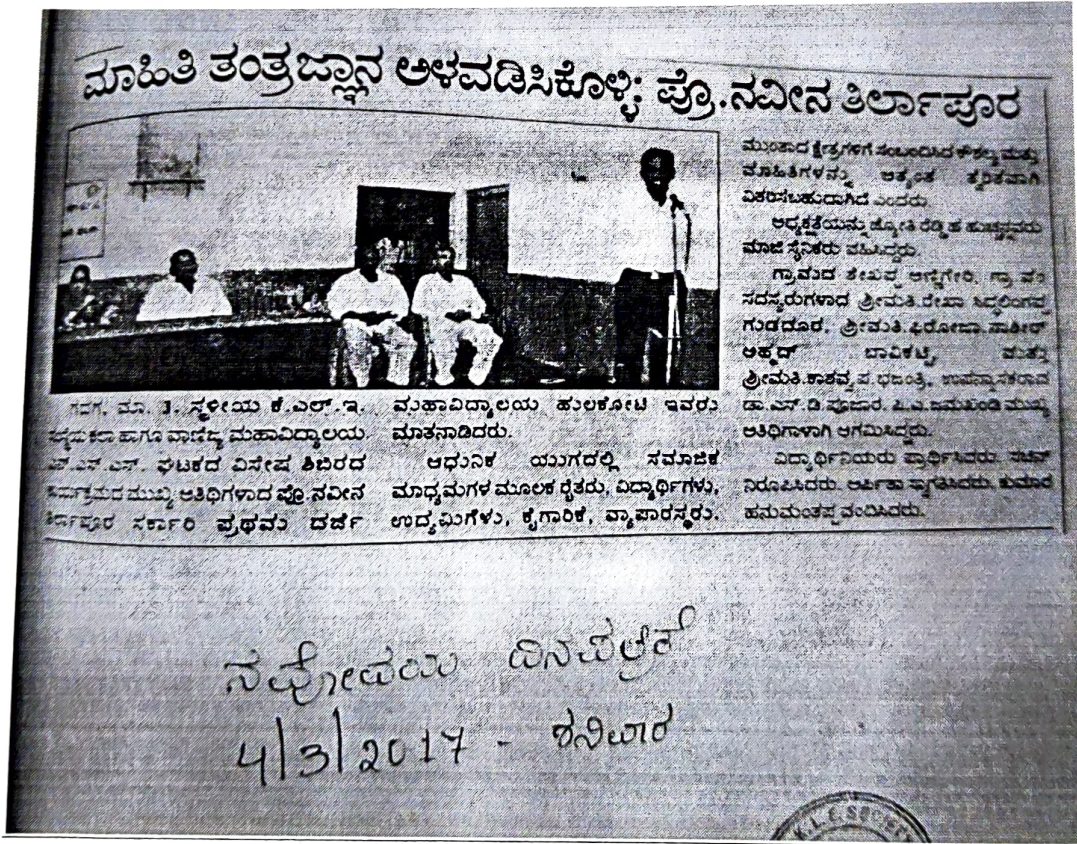 ಮಾಹಿತಿ ತಂತ್ರಜ್ಞಾನ ಅಳವಡಿಸಿಕೊಳ್ಳಿ: ಪ್ರೊ.ನವೀನ ತಿರ್ಲಾಪೂರ
ಗದಗ, ಮಾ. 3. ಸ್ಥಳೀಯ ಕೆ.ಎಲ್.ಇ.
ಕಲಾ ಹಾಗೂ ವಾಣಿಜ್ಯ ಮಹಾವಿದ್ಯಾಲಯ.
ಎನ್.ಎಸ್.ಎಸ್. ಘಟಕದ ವಿಸೇಷ ಶಿಬಿರದ
ಕಾರ್ಯಕ್ರಮದ ಮುಖ್ಯ ಅತಿಥಿಗಳಾದ ಪ್ರೊ.ನವೀನ
ತಿರ್ಲಾಪೂರ ಸರ್ಕಾರಿ ಪ್ರಥಮ ದರ್ಜೆ
ಮಹಾವಿದ್ಯಾಲಯ ಹುಲಕೋಟಿ ಇವರು
ಮಾತನಾಡಿದರು.
ಆಧುನಿಕ ಯುಗದಲ್ಲಿ ಸಮಾಜಿಕ
ಮಾಧ್ಯಮಗಳ ಮೂಲಕ ರೈತರು, ವಿದ್ಯಾರ್ಥಿಗಳು,
ಉದ್ಯಮಿಗಳು, ಕೈಗಾರಿಕೆ, ವ್ಯಾಪಾರಸ್ಥರು.
ಮುಂತಾದ ಕ್ಷೇತ್ರಗಳಿಗೆ ಸಂಬಂದಿಸಿದ ಕೌಶಲ್ಯ ಮತ್ತು
ಮಾಹಿತಿಗಳನ್ನು ಅತ್ಯಂತ ತ್ವರಿತವಾಗಿ
ವಿತರಿಸಬಹುದಾಗಿದೆ ಎಂದರು.
ಅಧ್ಯಕ್ಷತೆಯನ್ನು ಜ್ಯೋತಿ ರೆಡ್ಡಿ ಹ ಹುಚ್ಚನ್ನವರು
ಮಾಜಿ ಸೈನಿಕರು ವಹಿಸಿದ್ದರು.
ಗ್ರಾಮದ ಶೇಖಪ್ಪ ಅಣ್ಣಿಗೇರಿ, ಗ್ರಾ ಪಂ
ಸದಸ್ಯರುಗಳಾದ ಶ್ರೀಮತಿ.ರೇಖಾ ಸಿದ್ಧಲಿಂಗಪ್ಪ
ಗುಡದೂರ, ಶ್ರೀಮತಿ.ಫಿರೋಜಾ
ಅಹ್ಮದ್ ಬಾವಿಕಟ್ಟಿ ಮತ್ತು
ಶ್ರೀಮತಿ.ಕಾಶವ್ವ ಪ.ಭಜಂತ್ರಿ, ಉಪನ್ಯಾಸಕರಾದ
ಡಾ.ಎಸ್.ಡಿ.ಪೂಜಾರ, ಪಿ.ಎ.ಜಮಖಂಡಿ ಮುಖ್ಯ
ಅತಿಥಿಗಾಳಾಗಿ ಆಗಮಿಸಿದ್ದರು.
ವಿದ್ಯಾರ್ಥಿನಿಯರು ಪ್ರಾರ್ಥಿಸಿದರು. ಸಚಿನ್
ನಿರೂಪಿಸಿದರು. ಅರ್ಪಿತಾ ಸ್ವಾಗತಿಸಿದರು. ಕುಮಾರ
ಹನುಮಂತಪ್ಪ ವಂದಿಸಿದರು.
ನವೋದಯ ದಿನಪತ್ರಿಕೆ
4/3/2017 - ಶನಿವಾರ
K.L.E.